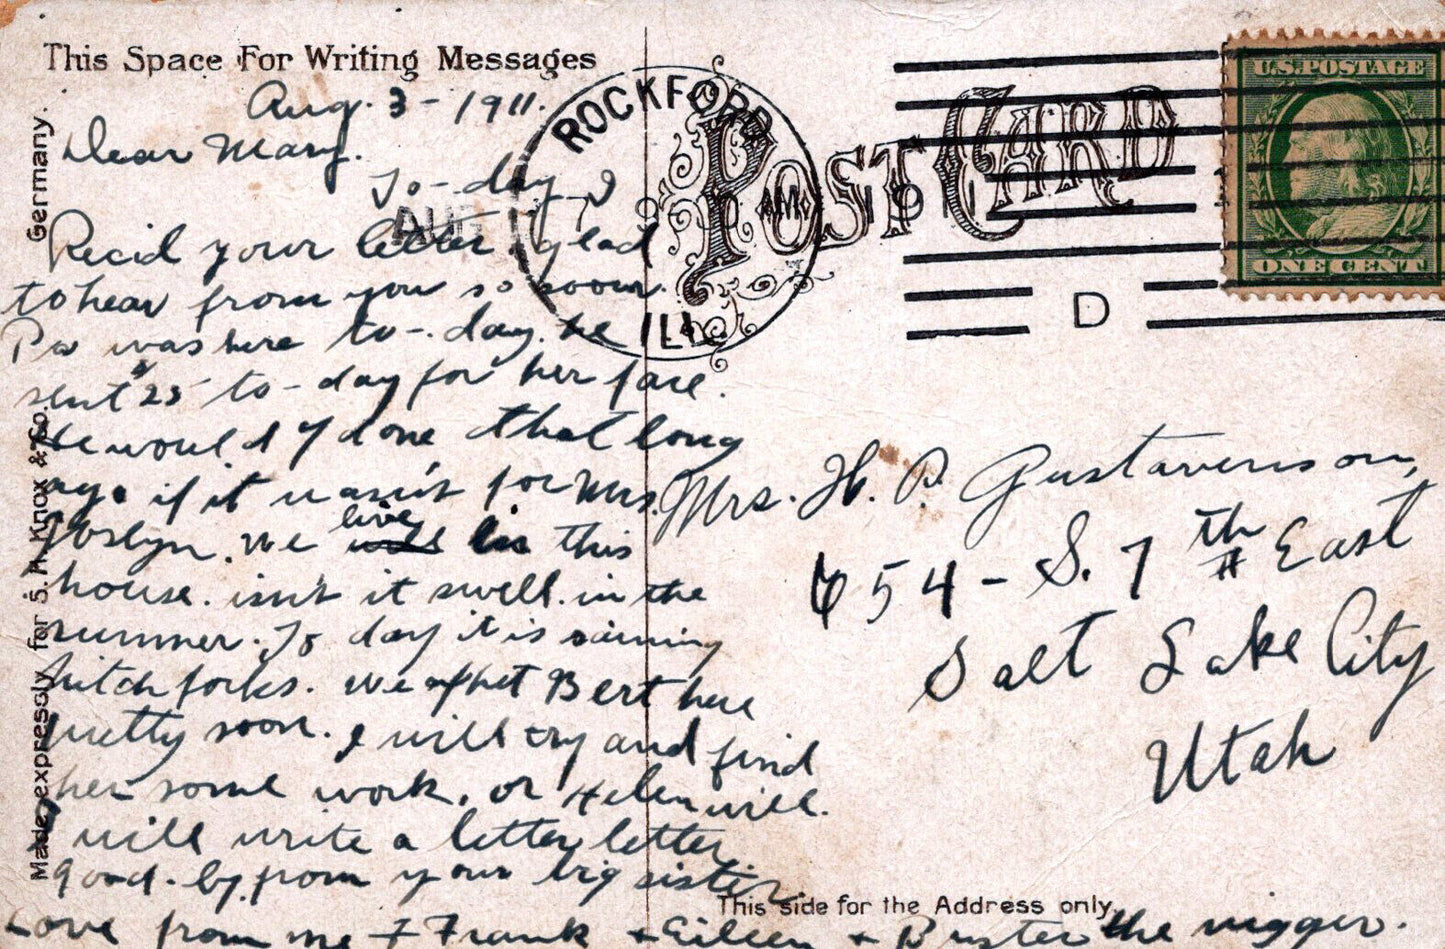 This Space For Writing Messages
Aug. 3 - 1911.
Dear Mary.
To-day I
Rec'd your letter glad
to hear from you so soon.
Pa was here to-day. he
sent $25 to-day for her fare.
He would of done that long
ago if it wasn't for Mrs.
Joslyn. We live in this
house. isn't it swell. in the
summer. To day it is raining
pitch forks. We expect Bert here
pretty soon. I will try and find
her some work. or Helen will.
I will write a letter letter
good-by from your big sister
Love from me + Frank + Eileen + Buster the nigger.
Made expressly for S. H. Knox & Co. Germany.
ROCKFORD
ILL
AUG
7
AM
191
D
POST CARD
U.S. POSTAGE
ONE CENT
Mrs. H. P. Gustavenson,
654 - S. 7th East
Salt Lake City
Utah
This side for the Address only